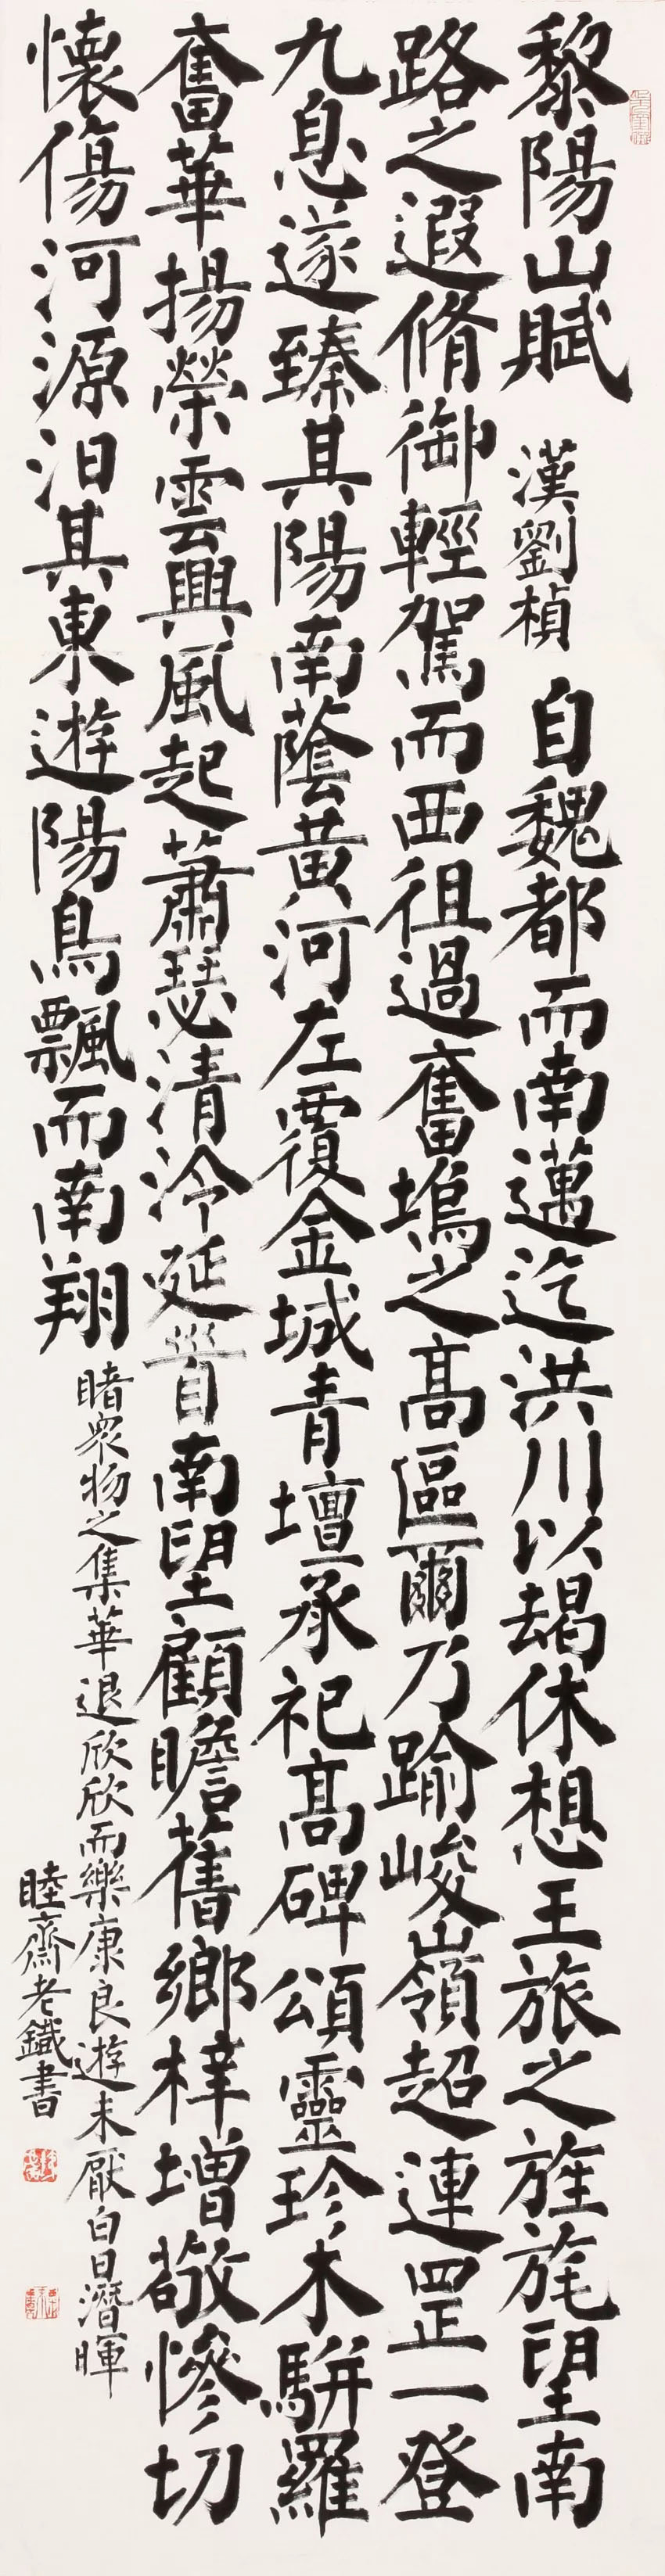 黎陽山賦 漢劉楨 自魏都而南邁迄洪川以朅休想王旅之旌旄望南
路之遐脩御輕駕而西徂過奮塢之高區爾乃踰峻嶺超連罡一登
九息遂臻其陽南蔭黄河左覆金城青壇承祀高碑頌靈珍木駢羅
奮華揚榮雲興風起蕭瑟清泠延首南望顧瞻舊鄉梓增敬慘切
懷傷河源汩其東遊陽鳥飄而南翔
睹衆物之集華退欣欣而樂康良遊未厭白日潛暉
睦齋老鐵書